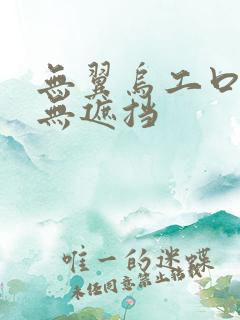 無翼烏工口
無遮挡
唯一的迷蝶
未经同意禁止转载